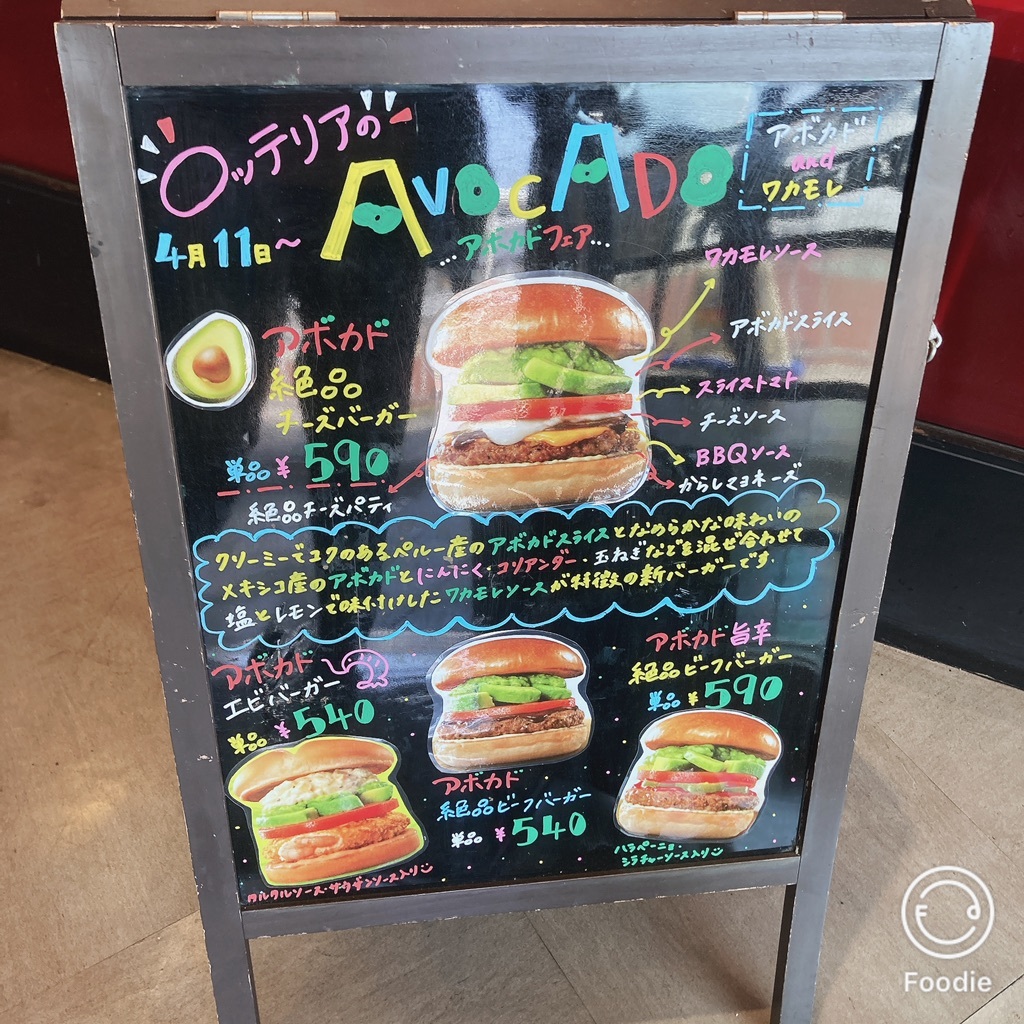 ロッテリアの
AVOCADO
アボカド
and
ワカモレ
4月11日〜
...アボカドフェア...
ワカモレソース
アボカドスライス
スライストマト
チーズソース
BBQソース
からしマヨネーズ
アボカド
絶品
チーズバーガー
単品 ¥590
絶品チーズパティ
クリーミーでコクのあるペルー産のアボカドスライスとなめらかな味わいの
メキシコ産のアボカドとにんにく・コリアンダー・玉ねぎなどを混ぜ合わせて
塩とレモンで味付けしたワカモレソースが特徴の新バーガーです。
アボカド
エビバーガー
単品 ¥540
タルタルソース・サウザンソース入り
アボカド
絶品ビーフバーガー
単品 ¥540
アボカド旨辛
絶品ビーフバーガー
単品 ¥590
ハラペーニョ・
シラチャーソース入り
Foodie